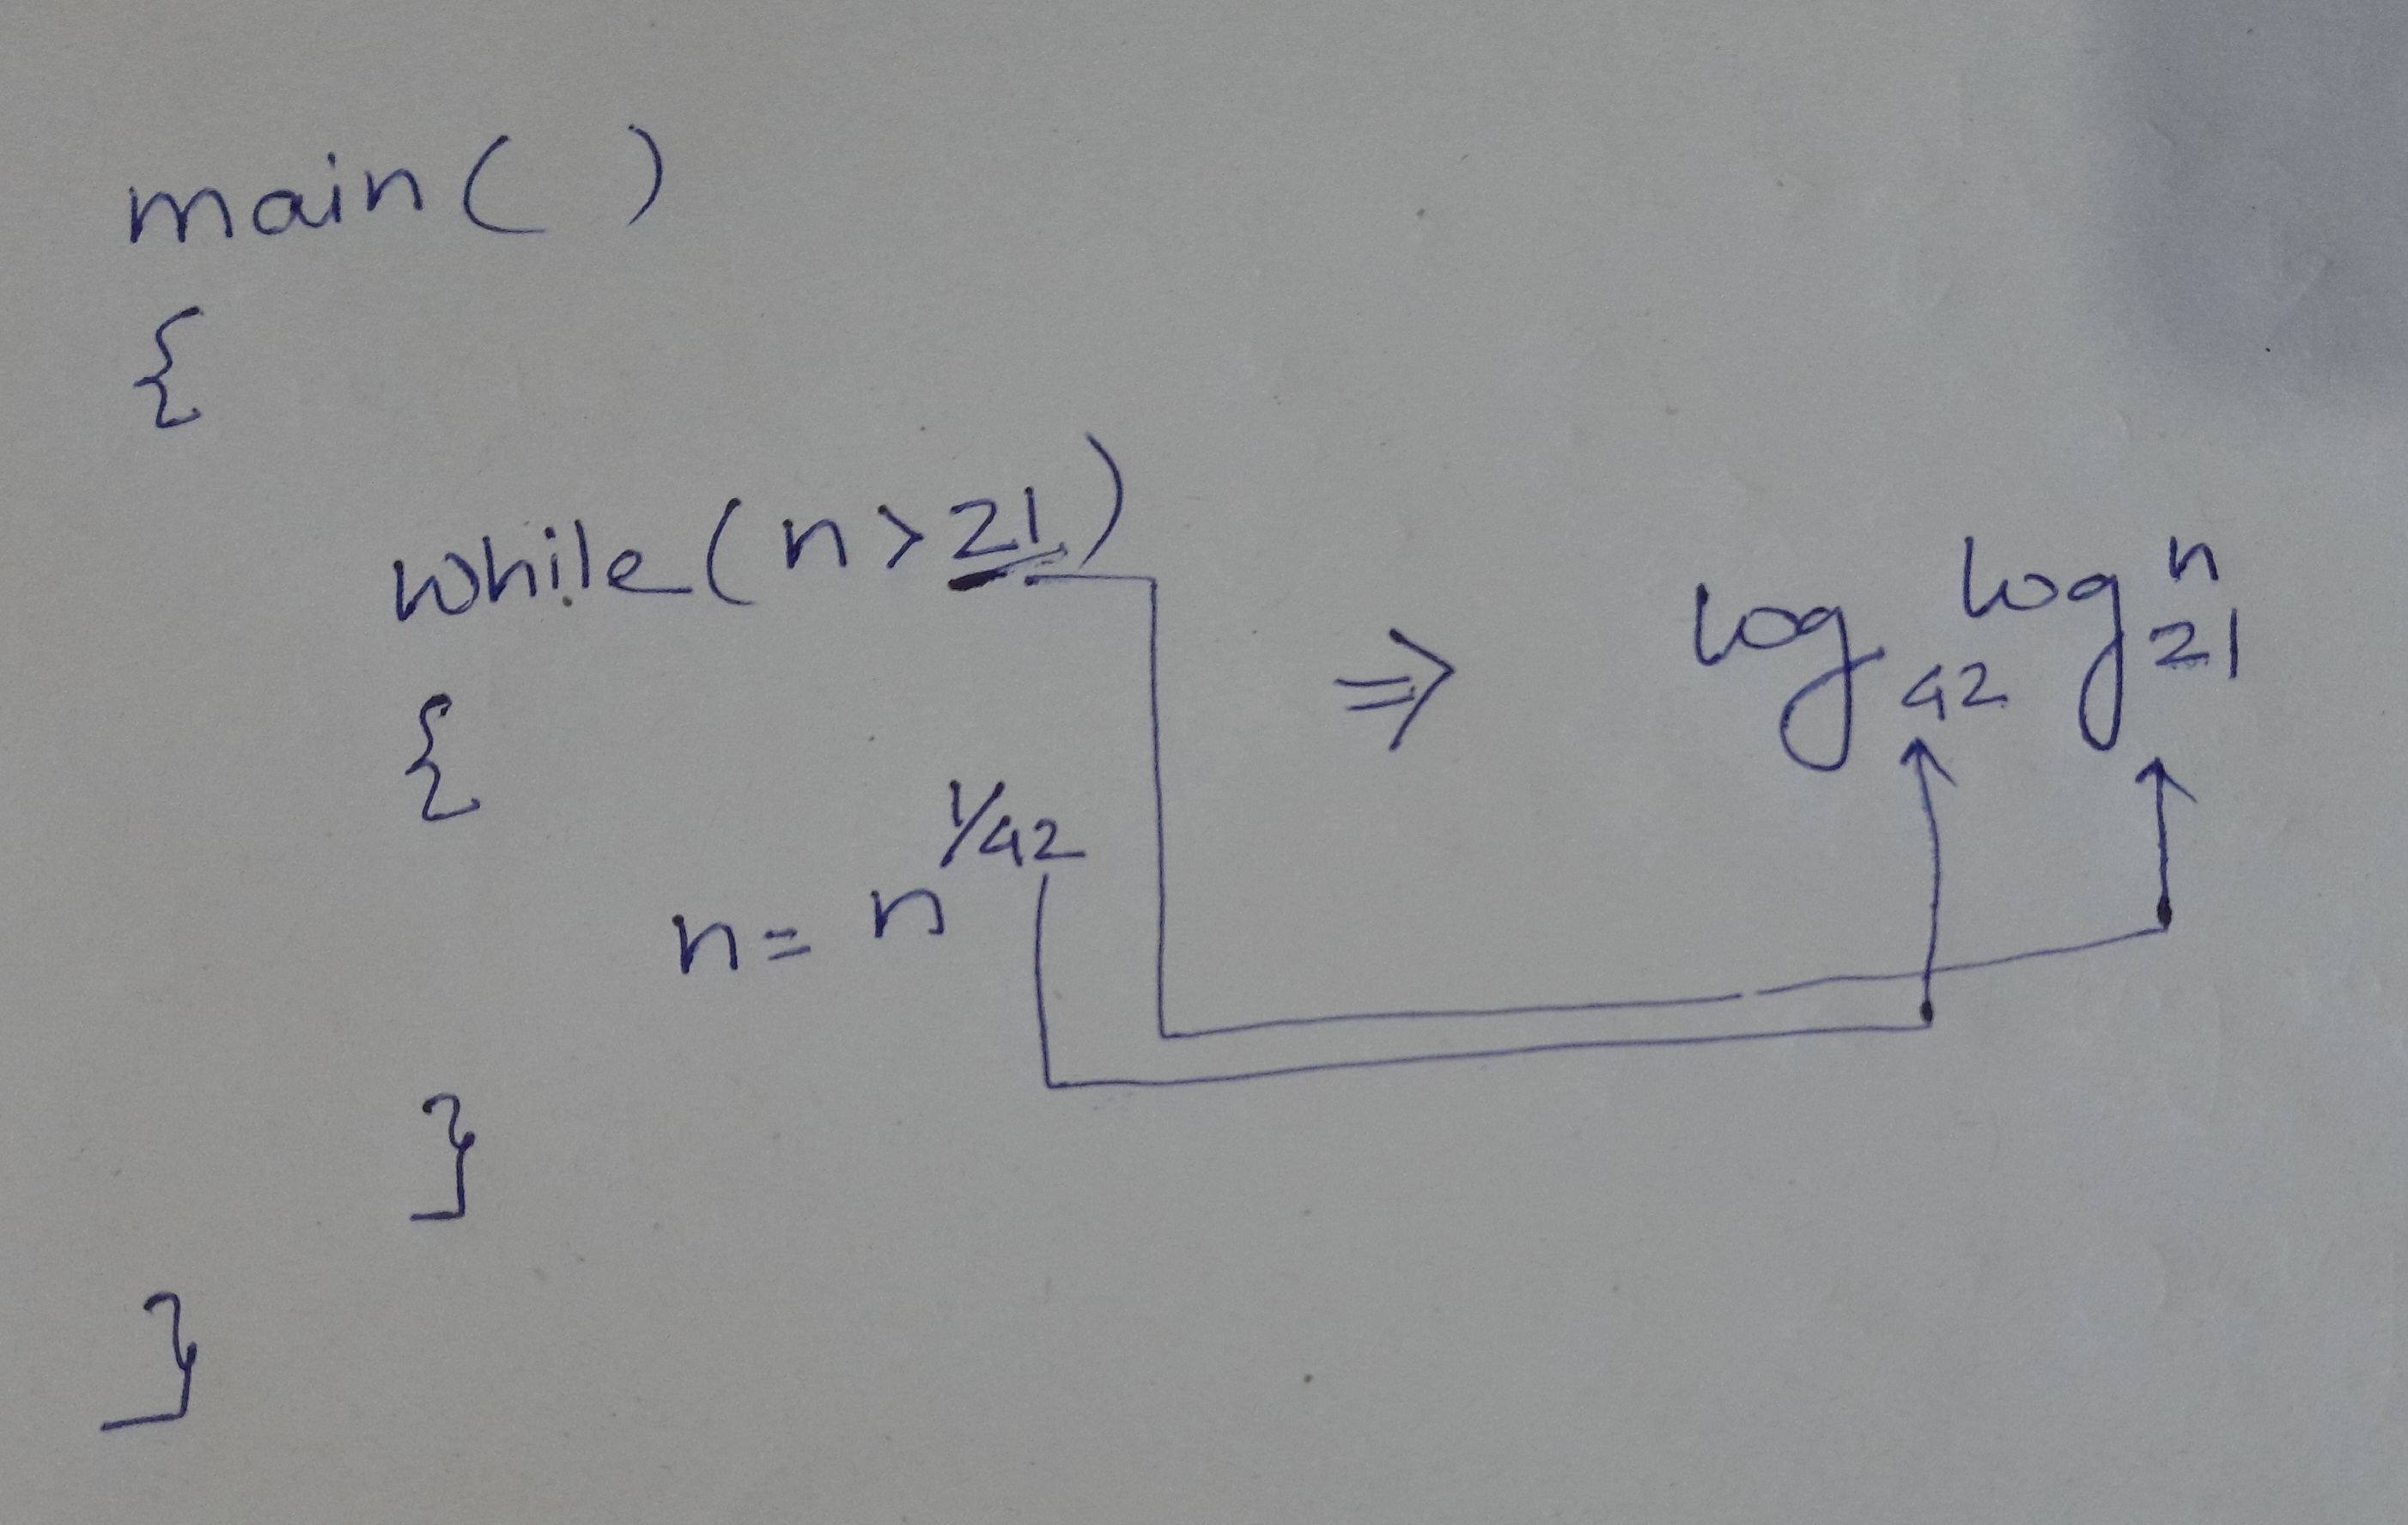 main( )
{
while(n>21)
{
n= n^1/42
}
}
⇒ log₄₂ log₂₁ⁿ